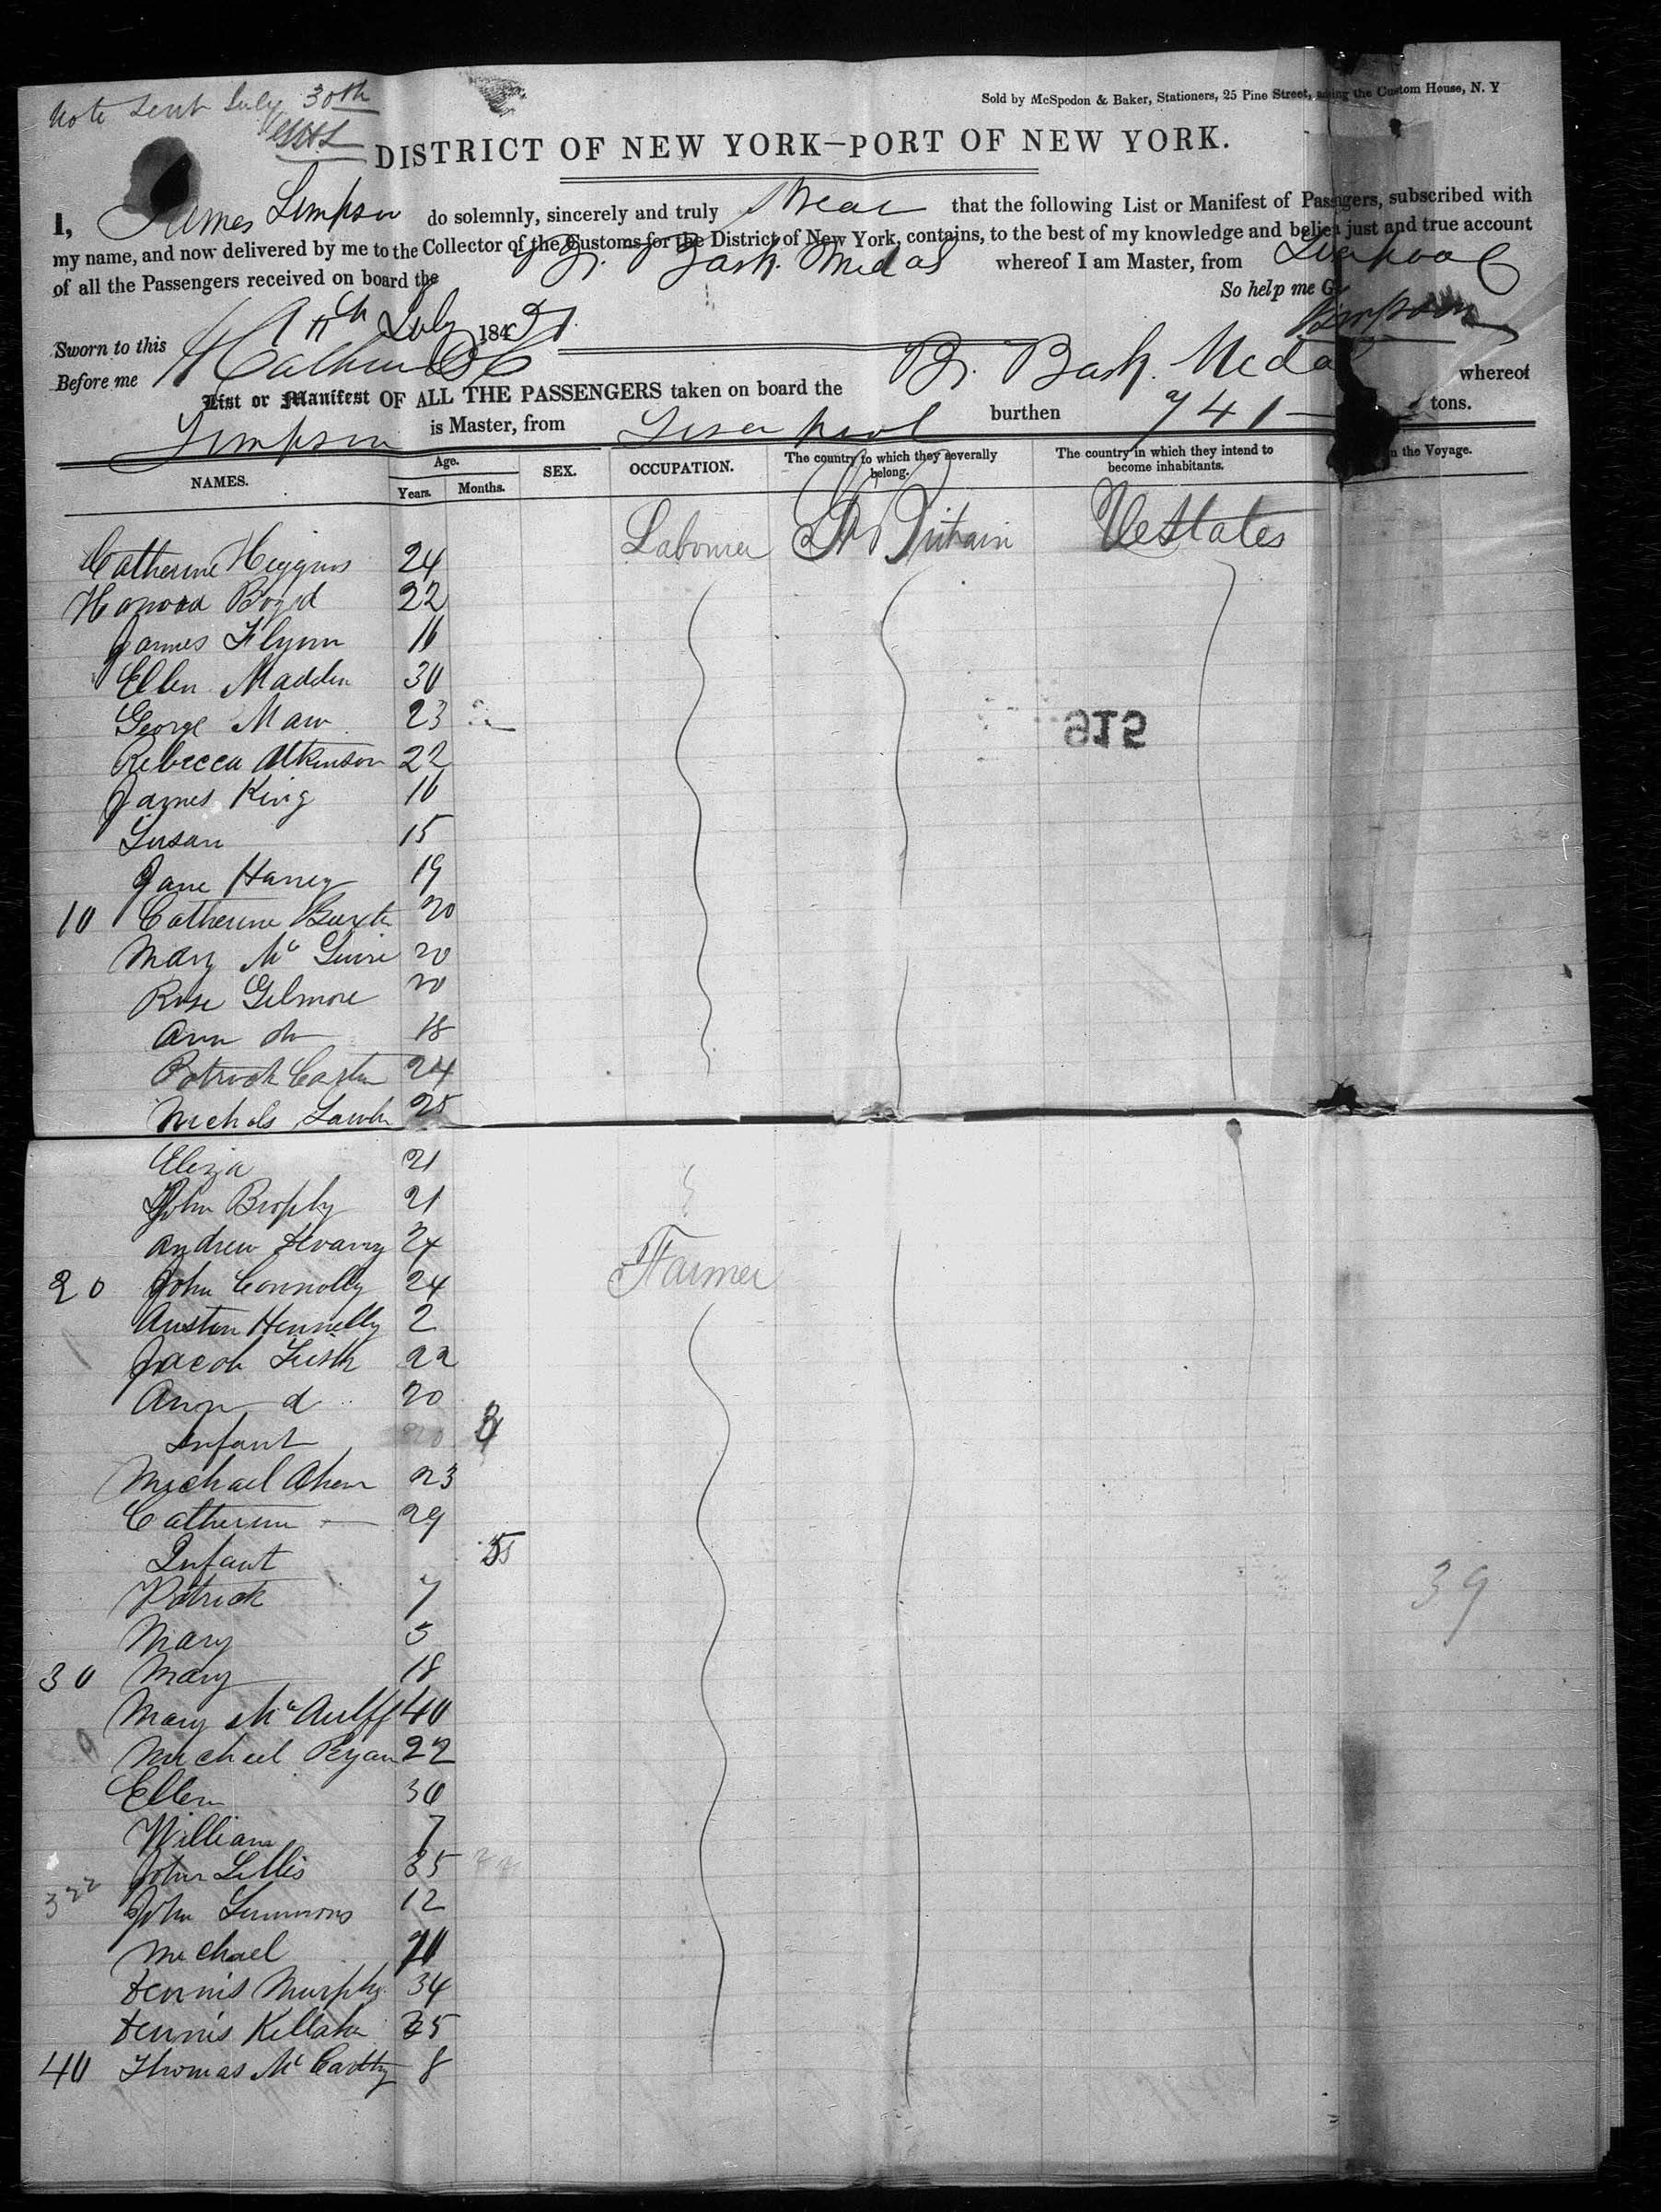 Note Sent July 30th
Sold by McSpedon & Baker, Stationers, 25 Pine Street, the Custom House, N. Y
DISTRICT OF NEW YORK—PORT OF NEW YORK.
I, James Simpson do solemnly, sincerely and truly Swear that the following List or Manifest of Passengers, subscribed with
my name, and now delivered by me to the Collector of the Customs for the District of New York, contains, to the best of my knowledge and belief just and true account
of all the Passengers received on board the Br. Bark. Medal whereof I am Master, from Liverpool
So help me G
Sworn to this July 184 Simpson
Before me
List or Manifest OF ALL THE PASSENGERS taken on board the Br. Bark. Medal whereof
Simpson is Master, from Liverpool burthen 741 tons.
NAMES. Age. Years. Months. SEX. OCCUPATION. The country to which they severally belong. The country in which they intend to become inhabitants. n the Voyage.
Catherine Higgins 24 Labourer Gt Britain UStates
Boyd 22
James Flynn 16
Ellen Madden 30
George Maw 23
915
Rebecca Atkinson 22
James King 16
Susan 15
Jane Harvey 19
10 Catherine 20
Mary Mc Guire 20
Rose Gilmore 20
Ann do 18
Patrick 24
Nichols 25
Eliza 21
John Brophy 21
Andrew 24
Farmer
20 John Connolly 24
Austin Hennelly 2
Jacob 22
Ann d 20
Infant
Michael Ahern 23
Catherine — 29
Infant 5
Patrick 7
39
Mary 5
30 Mary 18
Mary Mc Auliff 40
Micheel Ryan 22
Ellen 30
William 7
John Lillis 35
322
John Simmons 12
Michael
Dennis Murphy 34
Dennis 35
40 Thomas Mc Carthy 8